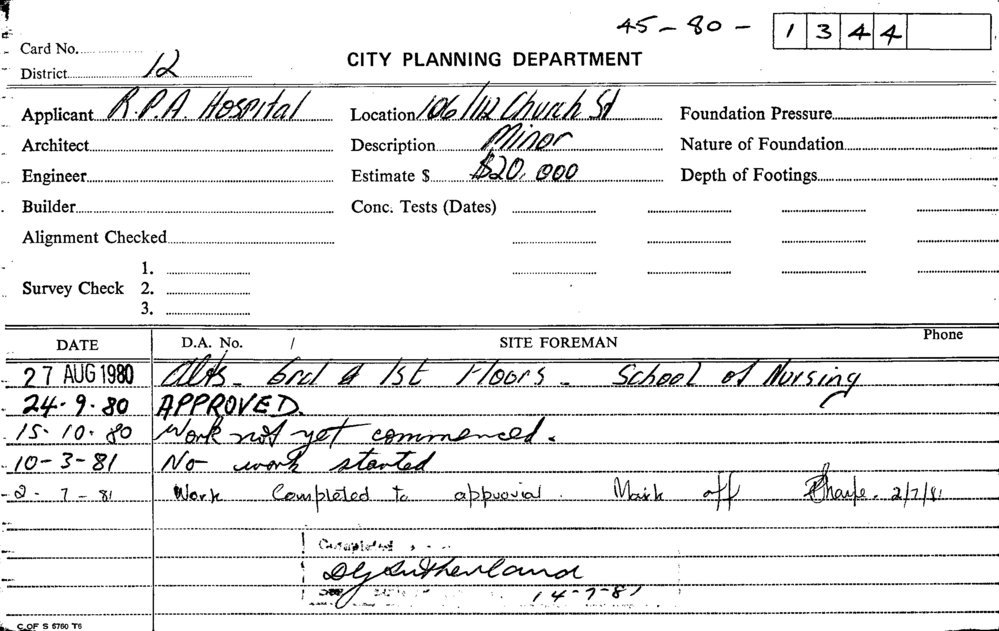 45-80- 1 3 4 4
Card No.
District 12
CITY PLANNING DEPARTMENT
Applicant R.P.A. Hospital Location 106/112 Church St Foundation Pressure
Architect Description Minor Nature of Foundation
Engineer Estimate $ $20,000 Depth of Footings
Builder Conc. Tests (Dates)
Alignment Checked
1.
Survey Check 2.
3.
DATE D.A. No. / SITE FOREMAN Phone
27 AUG 1980 Alts - Grd & 1st Floors - School of Nursing
24.9.80 APPROVED.
15.10.80 Work not yet commenced.
10-3-81 No work started
2-7-81 Work Completed to approval. Mark off 2/7/81
Completed
DG Sutherland
14-7-81
C OF S 6760 T6